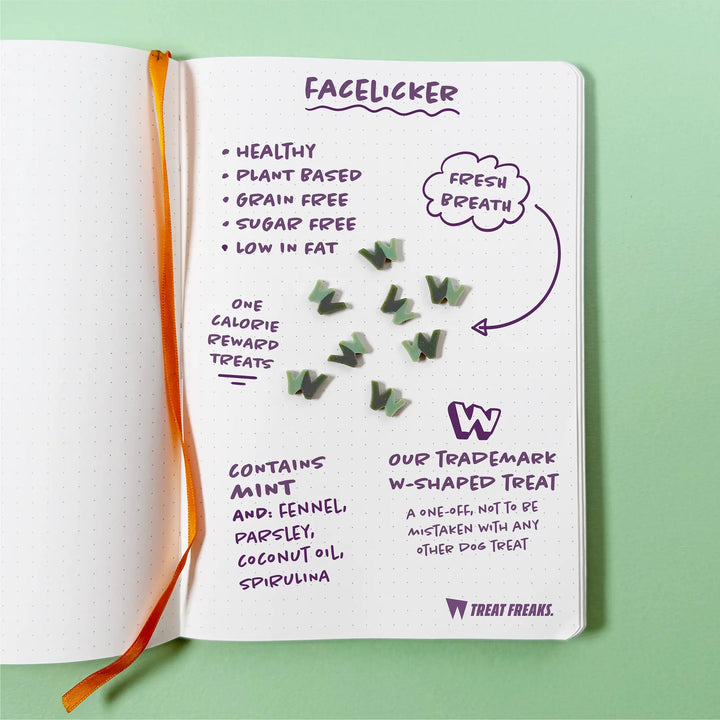 FACELICKER
• HEALTHY
• PLANT BASED
• GRAIN FREE
• SUGAR FREE
• LOW IN FAT
FRESH
BREATH
ONE
CALORIE
REWARD
TREATS
CONTAINS
MINT
AND: FENNEL,
PARSLEY,
COCONUT OIL,
SPIRULINA
W
OUR TRADEMARK
W-SHAPED TREAT
A ONE-OFF, NOT TO BE
MISTAKEN WITH ANY
OTHER DOG TREAT
TREAT FREAKS.